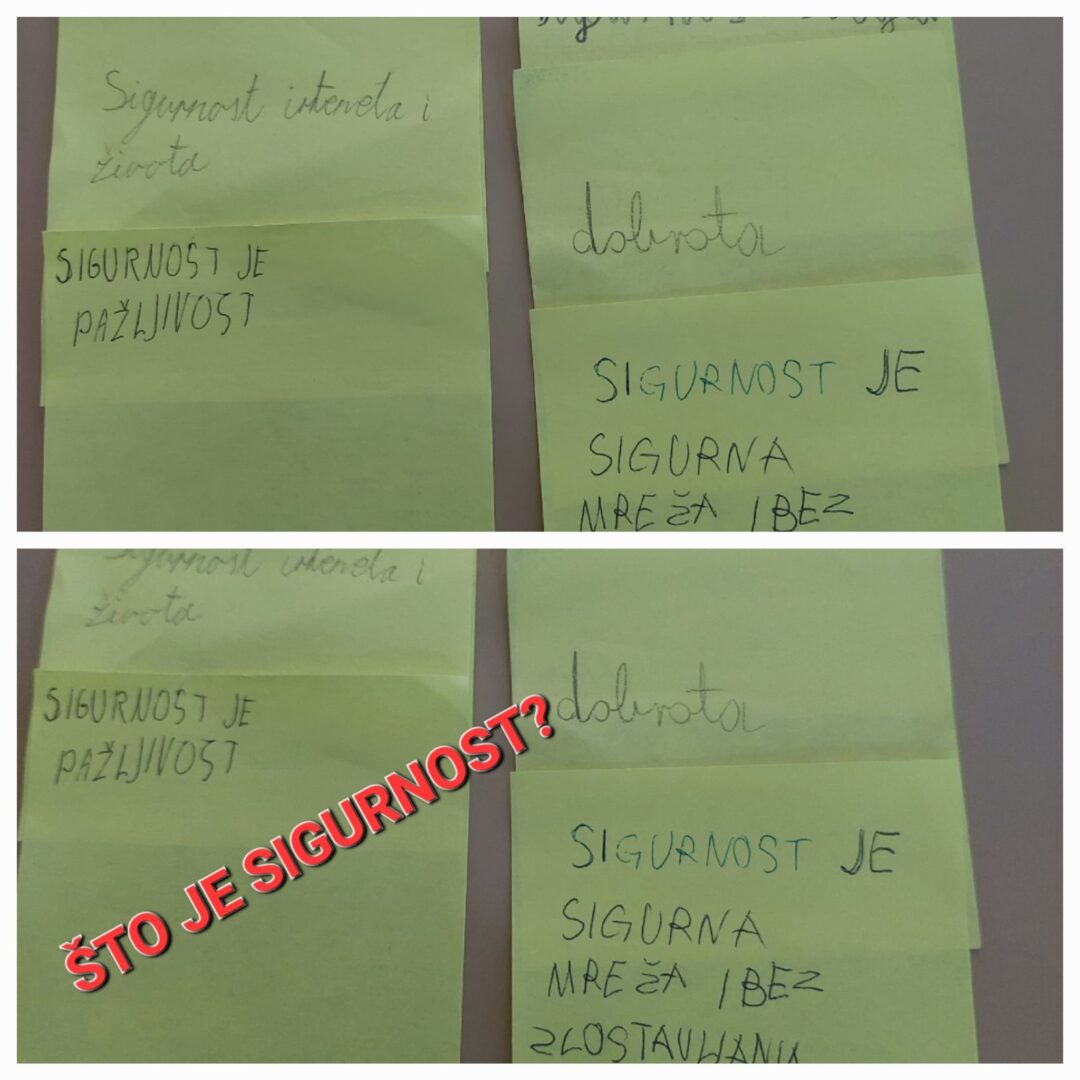 Sigurnost inteneta i
života
SIGURNOST JE
PAŽLJIVOST
dobrota
SIGURNOST JE
SIGURNA
MREŽA I BEZ
Sigurnost inteneta i
života
SIGURNOST JE
PAŽLJIVOST
dobrota
SIGURNOST JE
SIGURNA
MREŽA I BEZ
ZLOSTAVLJANJA
ŠTO JE SIGURNOST?